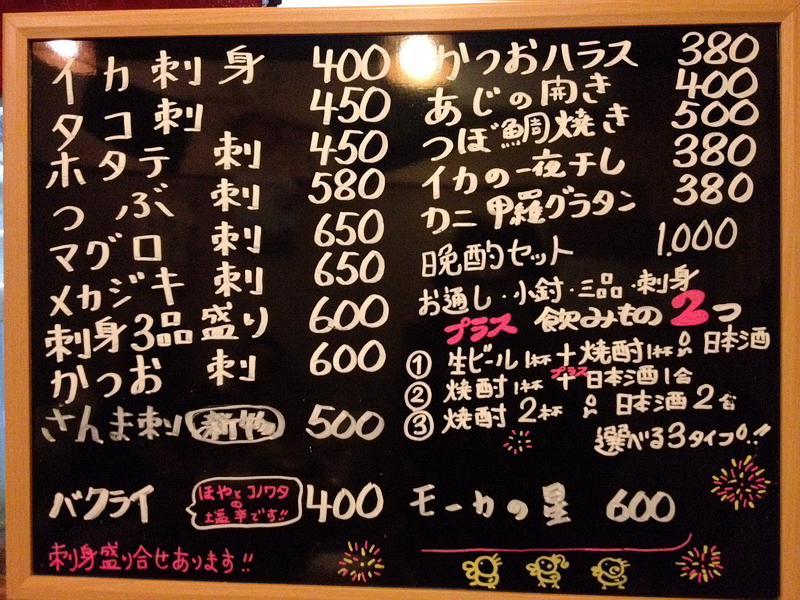 イカ刺身 400
タコ刺 450
ホタテ刺 450
つぶ刺 580
マグロ刺 650
メカジキ刺 650
刺身3品盛り 600
かつお刺 600
さんま刺 新物 500
バクライ 400
ほやとコノワタ
の
塩辛です!!
刺身盛り合せあります!!
かつおハラス 380
あじの開き 400
つぼ鯛焼き 500
イカの一夜干し 380
カニ甲羅グラタン 380
晩酌セット 1.000
お通し・小鉢・三品・刺身
プラス 飲みもの2つ
① 生ビール1杯+焼酎1杯 or 日本酒
② 焼酎1杯 プラス + 日本酒1合
③ 焼酎2杯 or 日本酒2合
選べる3タイプ!!
モーカの星 600